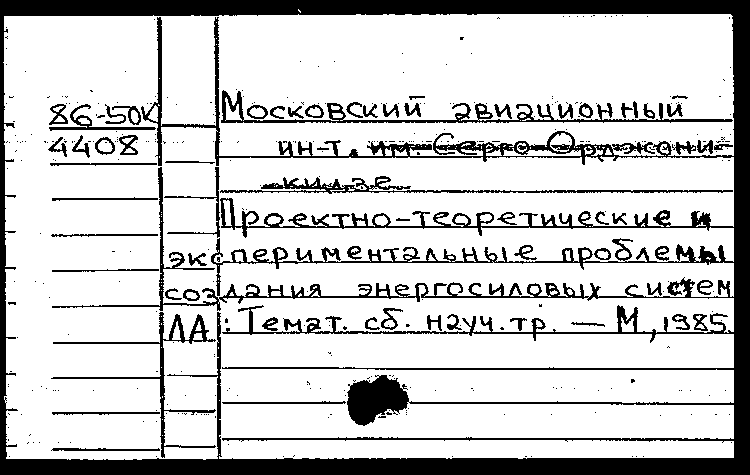 86-50К Московский авиационный
4408 ин-т. им. Серго Орджони-
кидзе
Проектно-теоретические и
экспериментальные проблемы
создания энергосиловых систем
ЛА : Темат. сб. науч. тр. — М, 1985.